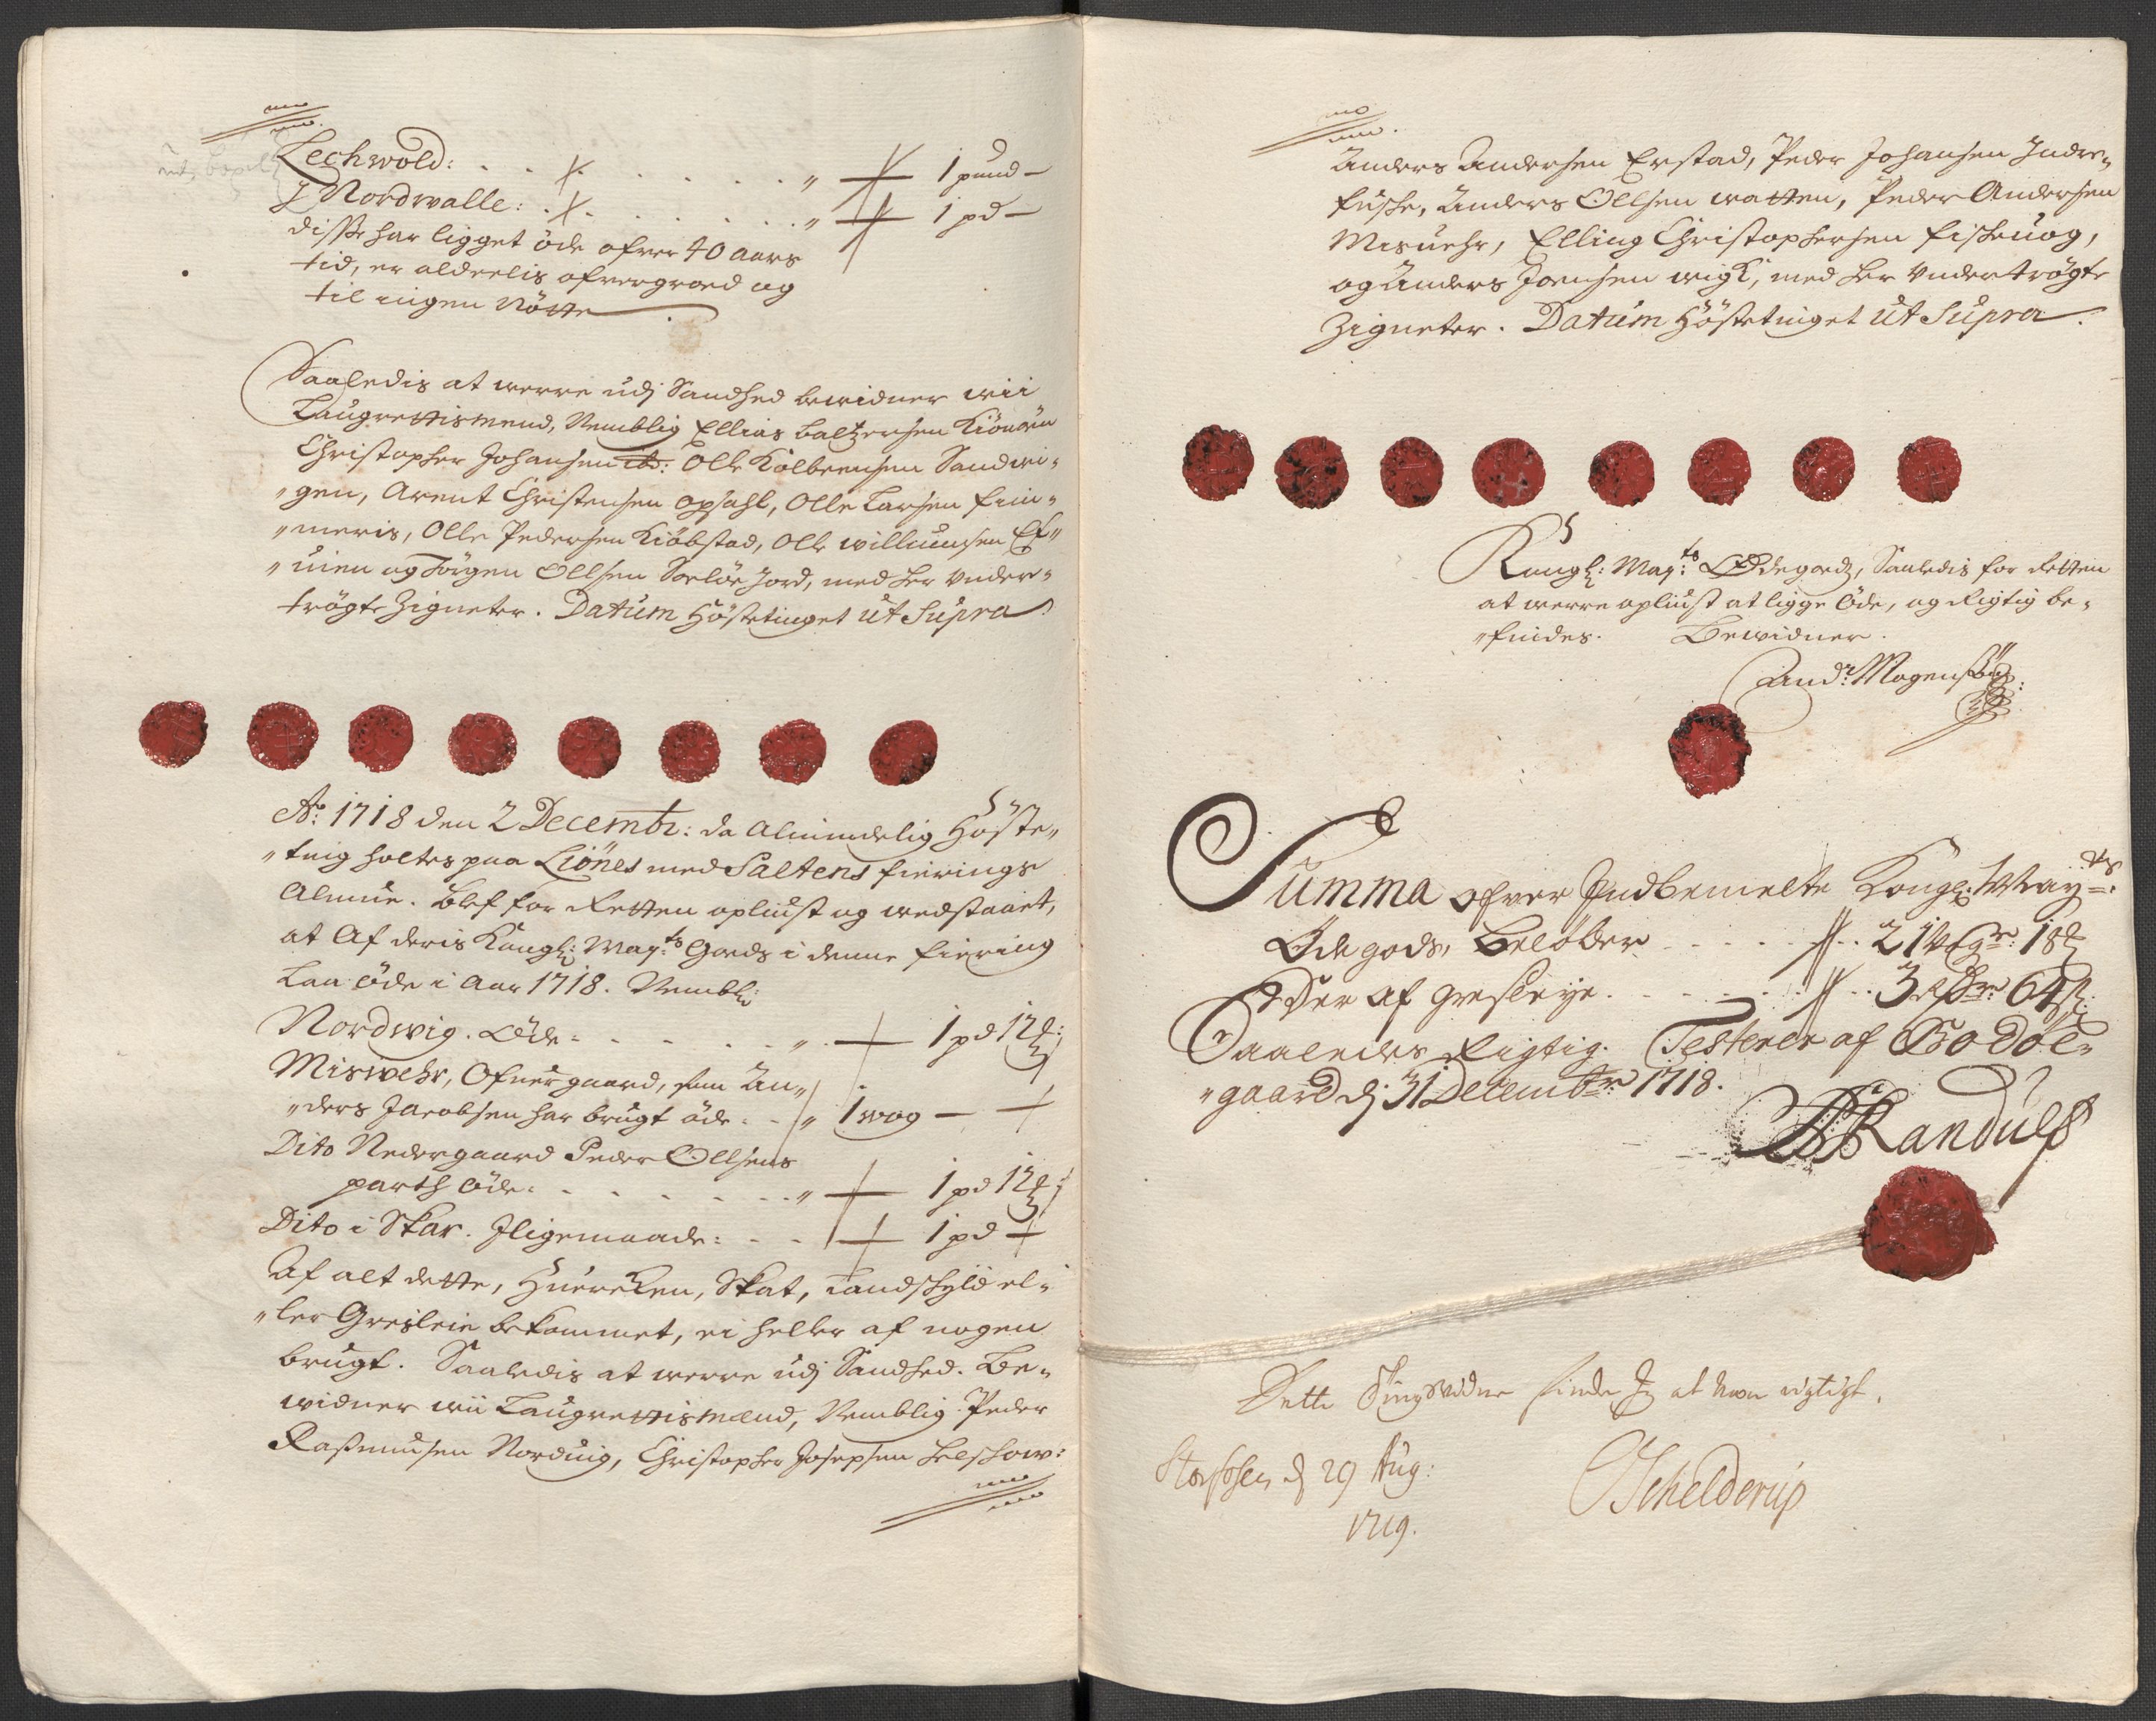 Lechwold: . . . . . . . . „ 1 pund –
I Nordwalle: . . . . . . . „ 1 pd –
disse har ligget öde ofver 40 aars
tid, er alderelis ofvergroed og
til ingen Nötte
Saaledis at werre udj Sandhed bewidner wii
Laugrettismend, Nemblig Ellias Baltzersen
Christopher Johansen ib: Olle Kolbeensen Sandwi„
„gen, Arent Christensen Opsahl, Olle Larsen fin„
„neris, Olle Pedersen Kiöbstad, Olle willumsen
og Jörgen Ollsen Soelöe Jord, med her under„
trögte Zigneter. Datum Höstetinget ut Supra
Ao: 1718 den 2 Decembr: da Almindelig Höste„
„ting holtes paa Liönes med Saltens fierings
Almue. Blef for Retten opliust og wedstaaet,
at Af deris Kongl: Mayts Gods i denne fiering
Laa öde i Aar 1718. Nembl:
Nordwig. öde: . . . . „ 1 pd 12
Miswehr, Ofuergaard, som An„
„ders Jacobsen har brugt öde: . „ 1 wog –
Dito Nedergaard Peder Ollsens
parth öde: . . . . . . „ 1 pd 12
Dito i Skar. Iligemaade: . . 1 pd
Af alt dette, Huercken, Skat, Landskyld el„
„ler Gresleie bekommet, ei heller af nogen
brugt. Saaledis at werre udj Sandhed. Be„
widner wii Laugrettismænd, Nemblig Peder
Rasmusen Norduig, Christopher Josepsen
Anders Andersen Erstad, Peder Johansen Indre„
fuske, Anders Ollsen watten, Peder Andersen
Misuehr, Elling Christophersen fiskeuog,
og Anders Joensen wigk, med her undertrögte
Zigneter. Datum Höstetinget ut Supra.
Kongl: Mayts: Ödegodz, Saaledis for Retten
at werre opliust at ligge Öde, og Rigtig be„
„findes. Bewidner.
And: Mogens
Summa ofver Indbemelte Kongl: Mayts:
Öde gods, Belöber . . . . 21 18
der af gresleye. . . . . . 3 64
Saaledes Rigtig. Testerer af Bodöe„
„gaard dj 31 Decembr 1718.
Randulf
Dette Tingsvidne finde Jeg at være rigtigt.
d 29 Aug:
1719.
Schelderup